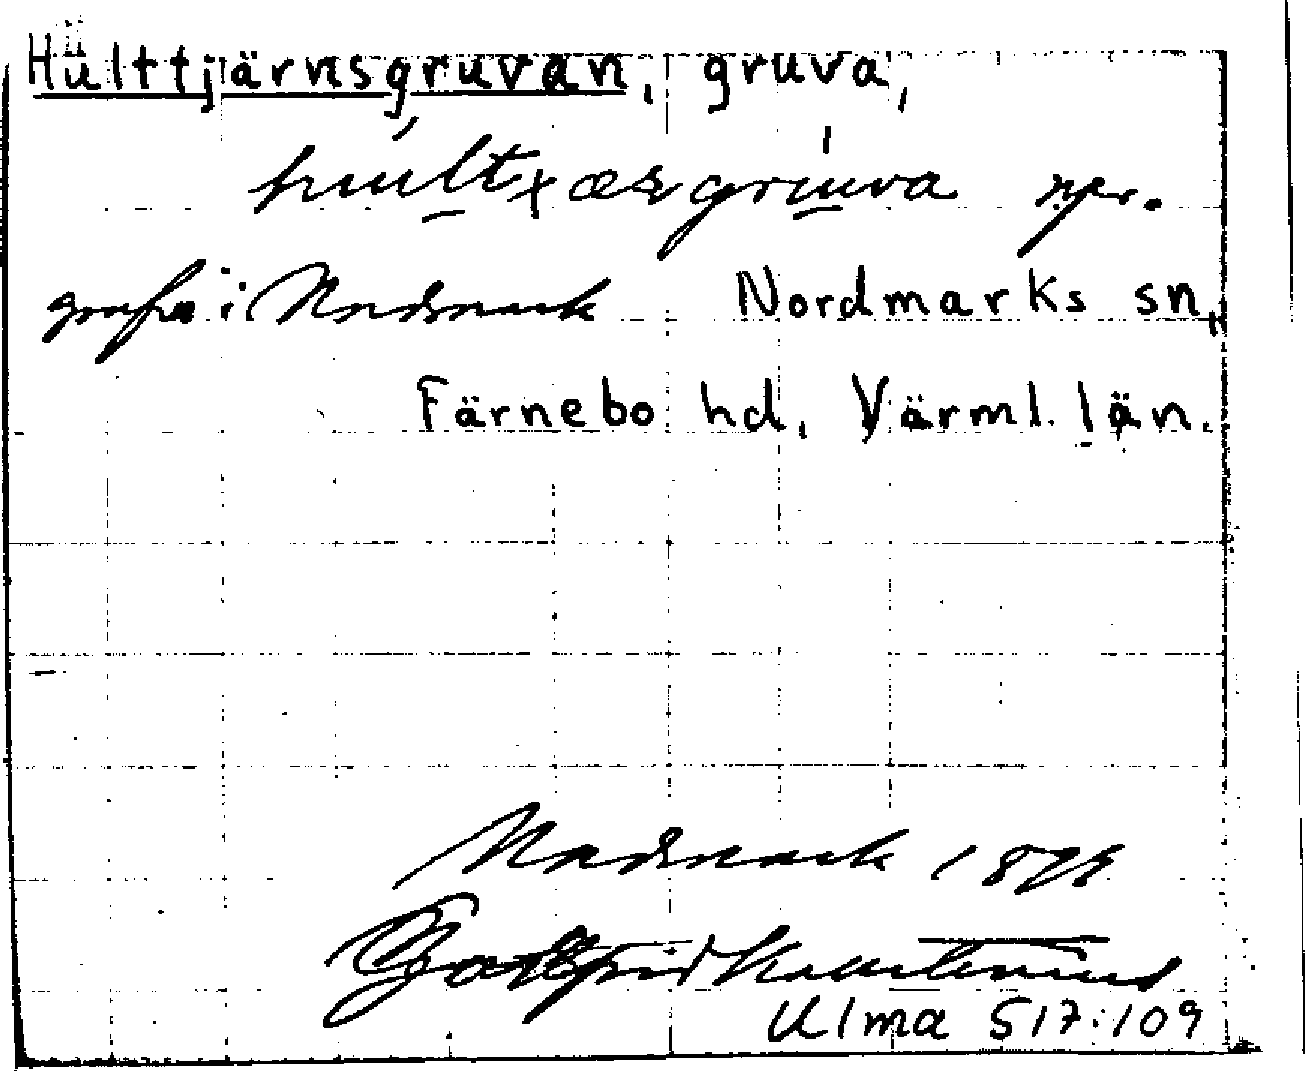 Hülttjärnsgruvan, gruva,
grufva i Nordmark Nordmarks sn,
Färnebo hd, Värml. län.
Nordmark 1898
Gottfrid Kallstenius
Ulma 517:109